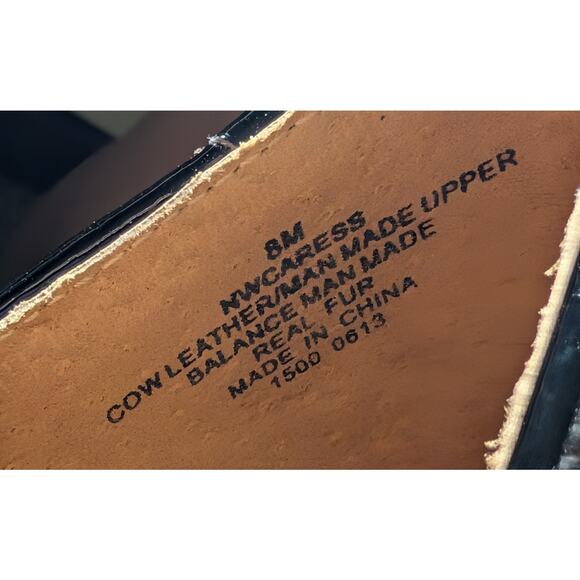 8M
NWCARESS
COW LEATHER/MAN MADE UPPER
BALANCE MAN MADE
REAL FUR
MADE IN CHINA
1500 0613